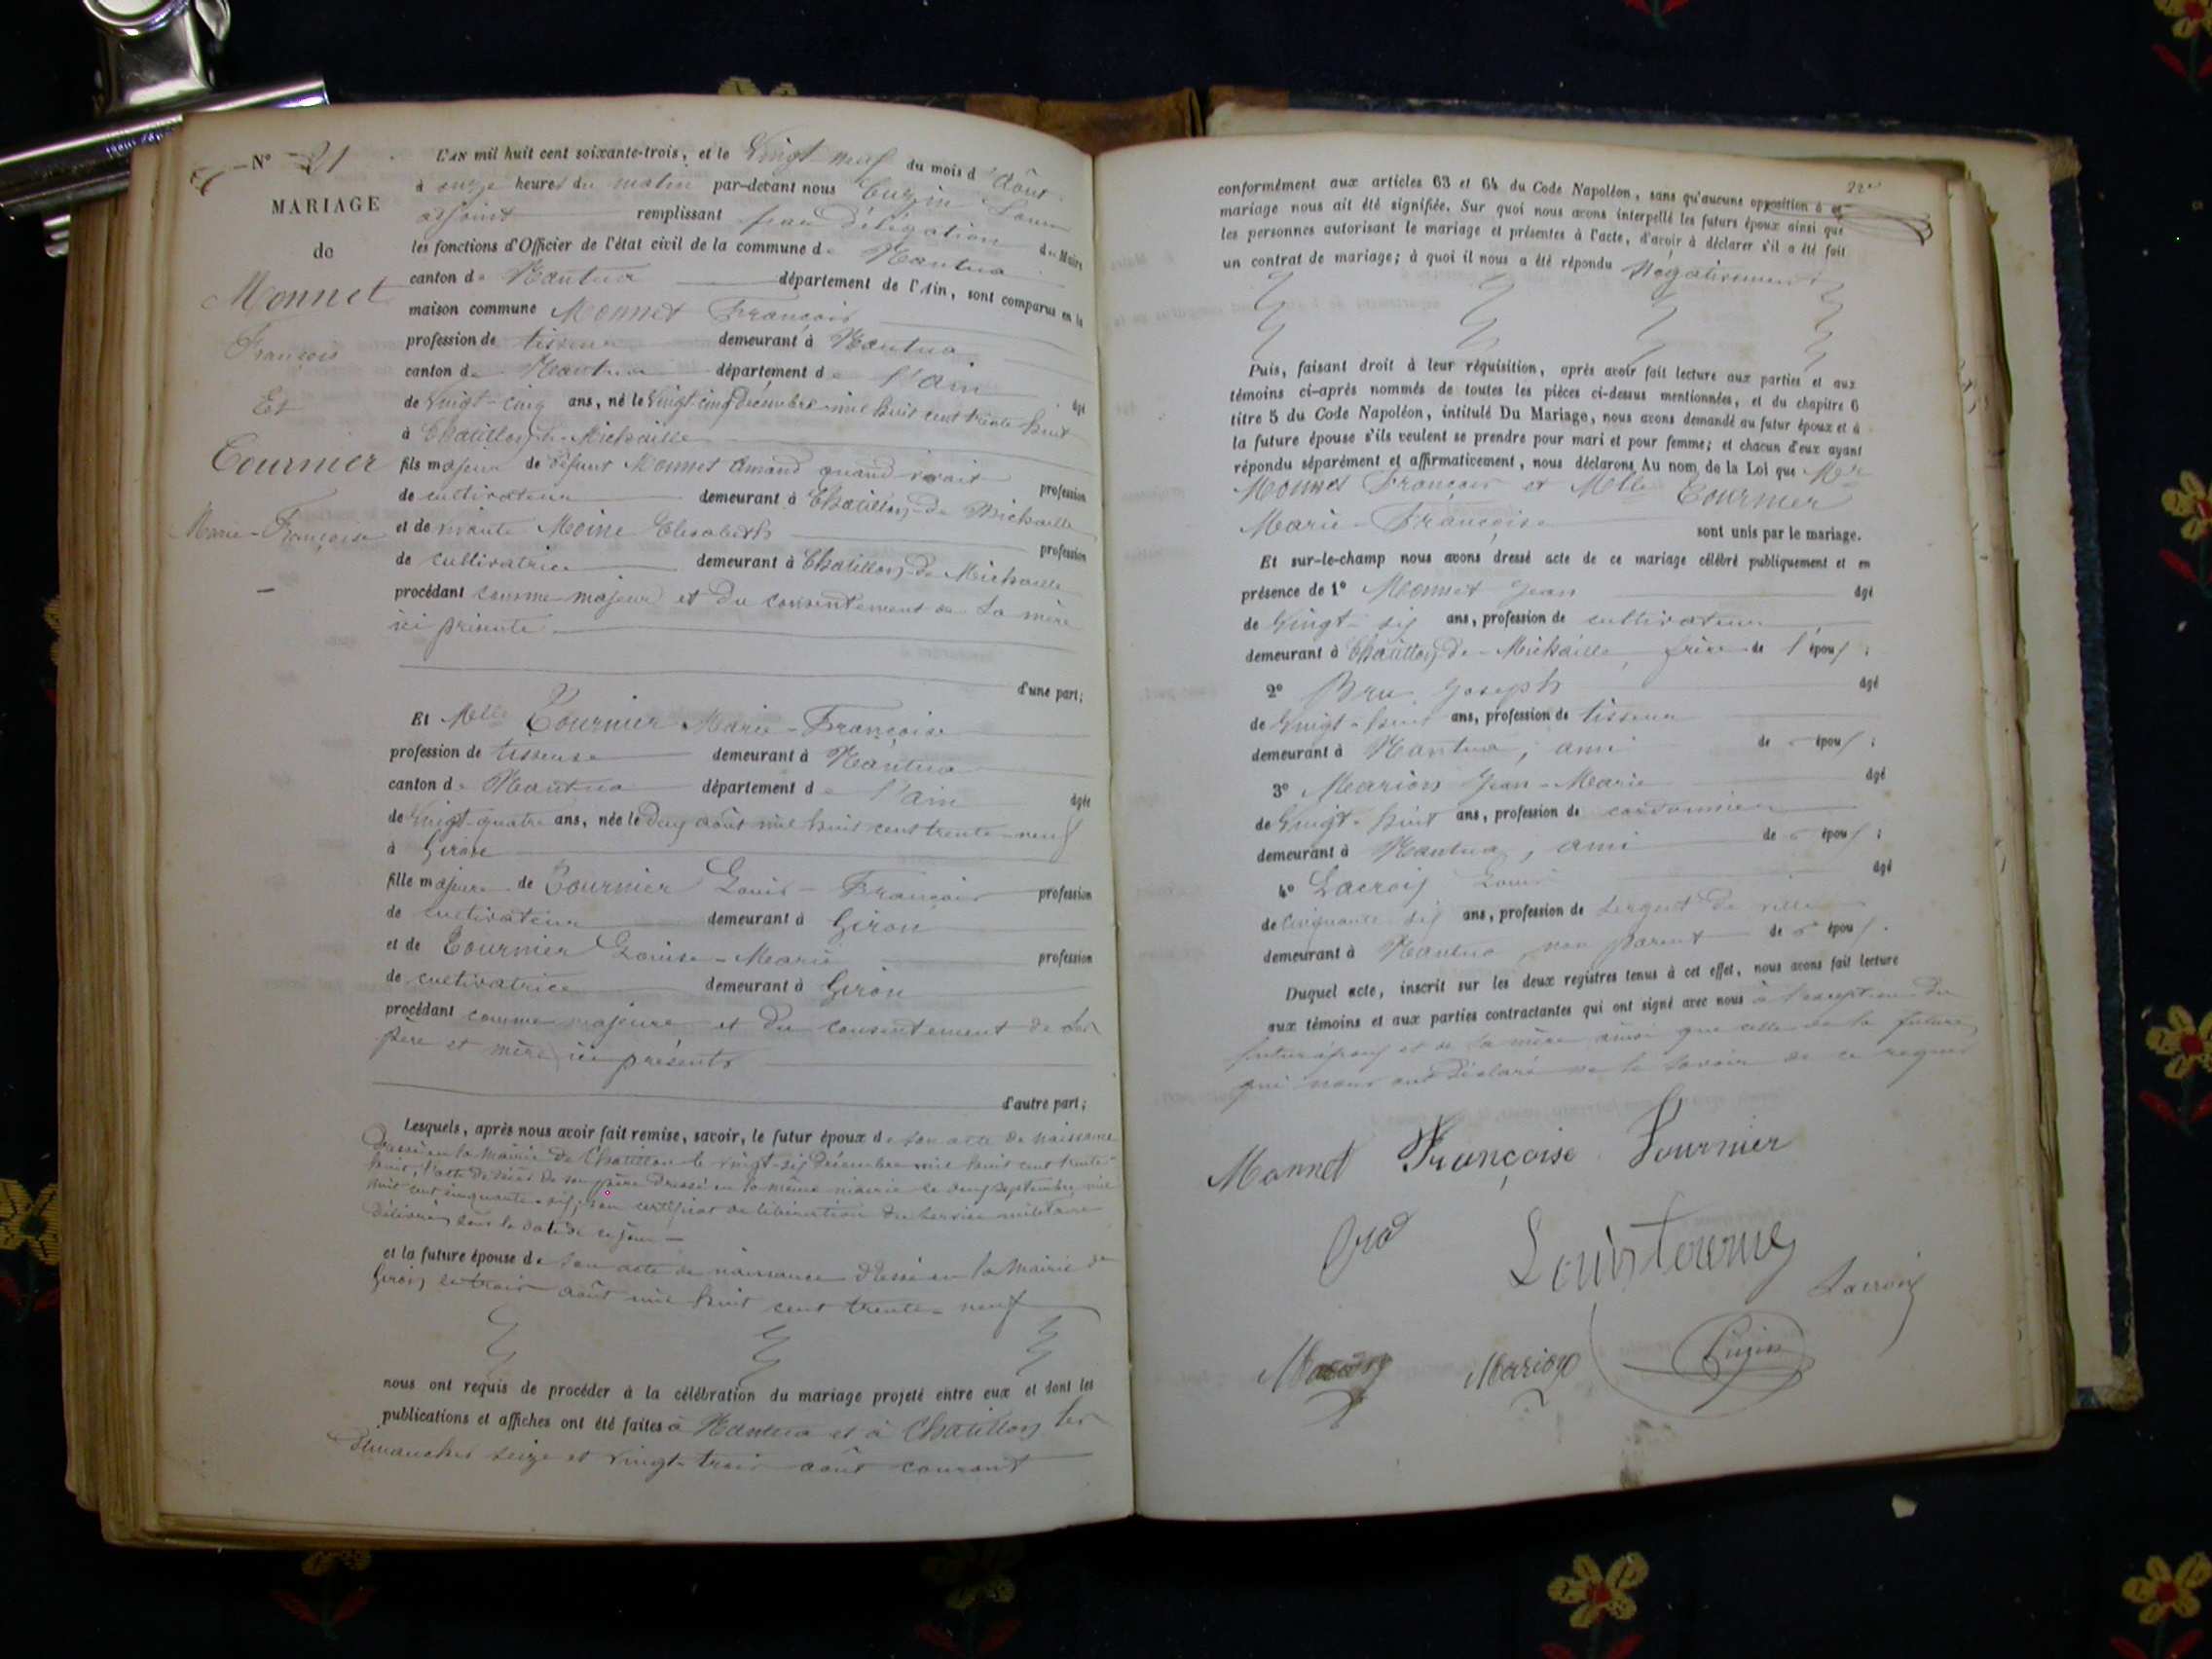 N° 21
MARIAGE
de
Monnet
François
Et
Tournier
Marie-Françoise
L'AN mil huit cent soixante-trois, et le Vingt neuf du mois d'Août
à onze heures du matin par-devant nous Cuzin Louis
adjoint remplissant par délégation du Maire
les fonctions d'Officier de l'état civil de la commune de Nantua
canton de Nantua département de l'Ain, sont comparus en la
maison commune Monnet François
profession de tisseur demeurant à Nantua
canton de Nantua département de l'Ain âgé
de Vingt-cinq ans, né le Vingt cinq Décembre mil huit cent trente huit
à Chatillon de Michaille
fils majeur de défunt Monnet Amand quand vivait profession
de cultivateur demeurant à Chatillon de Michaille
et de vivante Moine Elisabeth profession
de cultivatrice demeurant à Chatillon de Michaille
procédant comme majeur et du consentement de sa mère
ici présente
d'une part;
Et Melle Tournier Marie-Françoise
profession de tisseuse demeurant à Nantua
canton de Nantua département de l'Ain âgée
de Vingt-quatre ans, née le Deux août mil huit cent trente-neuf
à Giron
fille majeure de Tournier Louis-François profession
de cultivateur demeurant à Giron
et de Tournier Louise-Marie profession
de cultivatrice demeurant à Giron
procédant comme majeure et du consentement de ses
père et mère ici présents
d'autre part;
Lesquels, après nous avoir fait remise, savoir, le futur époux de son acte de naissance
dressé en la Mairie de Chatillon le vingt-six décembre mil huit cent trente
huit, l'acte de décès de son père dressé en la même mairie le onze septembre mil
huit cent cinquante-six; son certificat de libération du service militaire
délivré sous la date de ce jour
et la future épouse de son acte de naissance dressé en la Mairie de
Giron le trois août mil huit cent trente-neuf
nous ont requis de procéder à la célébration du mariage projeté entre eux et dont les
publications et affiches ont été faites à Nantua et à Chatillon les
Dimanches seize et vingt-trois août courant
22
conformément aux articles 63 et 64 du Code Napoléon, sans qu'aucune opposition à ce
mariage nous ait été signifiée. Sur quoi nous avons interpellé les futurs époux ainsi que
les personnes autorisant le mariage et présentes à l'acte, d'avoir à déclarer s'il a été fait
un contrat de mariage; à quoi il nous a été répondu Négativement
Puis, faisant droit à leur réquisition, après avoir fait lecture aux parties et aux
témoins ci-après nommés de toutes les pièces ci-dessus mentionnées, et du chapitre 6
titre 5 du Code Napoléon, intitulé Du Mariage, nous avons demandé au futur époux et à
la future épouse s'ils veulent se prendre pour mari et pour femme; et chacun d'eux ayant
répondu séparément et affirmativement, nous déclarons Au nom de la Loi que Mr
Monnet François et Melle Tournier
Marie-Françoise sont unis par le mariage.
Et sur-le-champ nous avons dressé acte de ce mariage célébré publiquement et en
présence de 1° Monnet Jean âgé
de Vingt-six ans, profession de cultivateur
demeurant à Chatillon de Michaille, frère de l'époux;
2° Bru Joseph âgé
de Vingt-huit ans, profession de tisseur
demeurant à Nantua, ami de époux;
3° Marion Jean-Marie âgé
de Vingt-huit ans, profession de cordonnier
demeurant à Nantua, ami de époux;
4° Lacroix Louis âgé
de Cinquante six ans, profession de Sergent de ville
demeurant à Nantua non parent de époux.
Duquel acte, inscrit sur les deux registres tenus à cet effet, nous avons fait lecture
aux témoins et aux parties contractantes qui ont signé avec nous à l'exception du
futur époux et de sa mère ainsi que celle de la future
qui nous ont déclaré ne le savoir de ce requis
Monnet Françoise Tournier
Lacroix
Marion
Cuzin